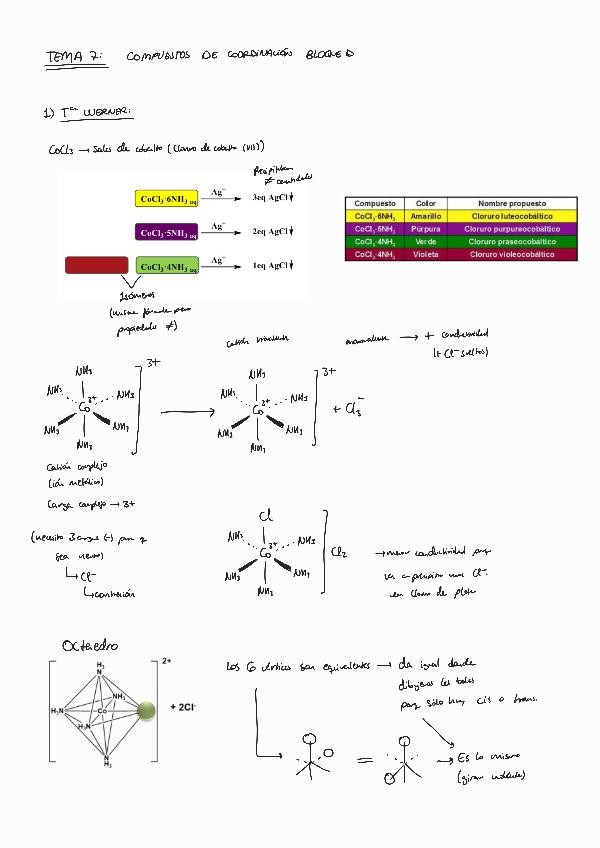 TEMA 7: COMPUESTOS DE COORDINACIÓN BLOQUE D
1) Tª WERNER:
CoCl3 → Sales de cobalto (Cloruro de cobalto (III))
Precipitan
≠ cantidades
CoCl3·6NH3 aq Ag+ 3eq AgCl↓
CoCl3·5NH3 aq Ag+ 2eq AgCl↓
CoCl3·4NH3 aq Ag+ 1eq AgCl↓
Isómeros
(misma fórmula pero
propiedades ≠)
Compuesto Color Nombre propuesto
CoCl3·6NH3 Amarillo Cloruro luteocobáltico
CoCl3·5NH3 Púrpura Cloruro purpureocobáltico
CoCl3·4NH3 Verde Cloruro praseocobáltico
CoCl3·4NH3 Violeta Cloruro violeocobáltico
catión trivalente
→ + conductividad
(+ Cl- sueltos)
NH3 3+
NH3 NH3
Co 3+
NH3 NH3
NH3
NH3 3+
NH3 NH3
Co 3+
NH3 NH3
NH3
+ Cl3-
Catión complejo
(ión metálico)
Carga complejo → 3+
(necesito 3 cargas (-) para q
sea neutro)
↳ Cl-
↳ contraión
Cl
NH3 NH3
Co 3+
NH3 NH3
NH3
Cl2
→ menor conductividad porq
va a precipitar una Cl-
en cloruro de plata
Octaedro
H3
N
2+
NH3
H3N Co
H3N
N
H3
+ 2Cl-
Los 6 vértices son equivalentes → da igual donde
dibujemos los
porq sólo hay cis o trans.
=
→ Es lo mismo
(giran moléculas)